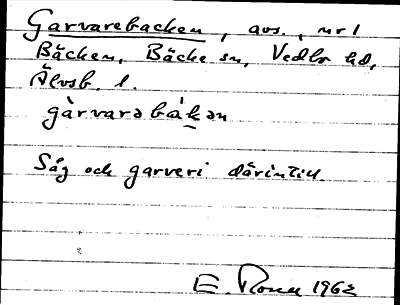 Garvarebacken, avs., nr 1
Bäcken, Bäcke sn, Vedbo hd,
Älvsb. l.
gàrvarəbákən
Såg och garveri därintill.
E. Rosell 1962